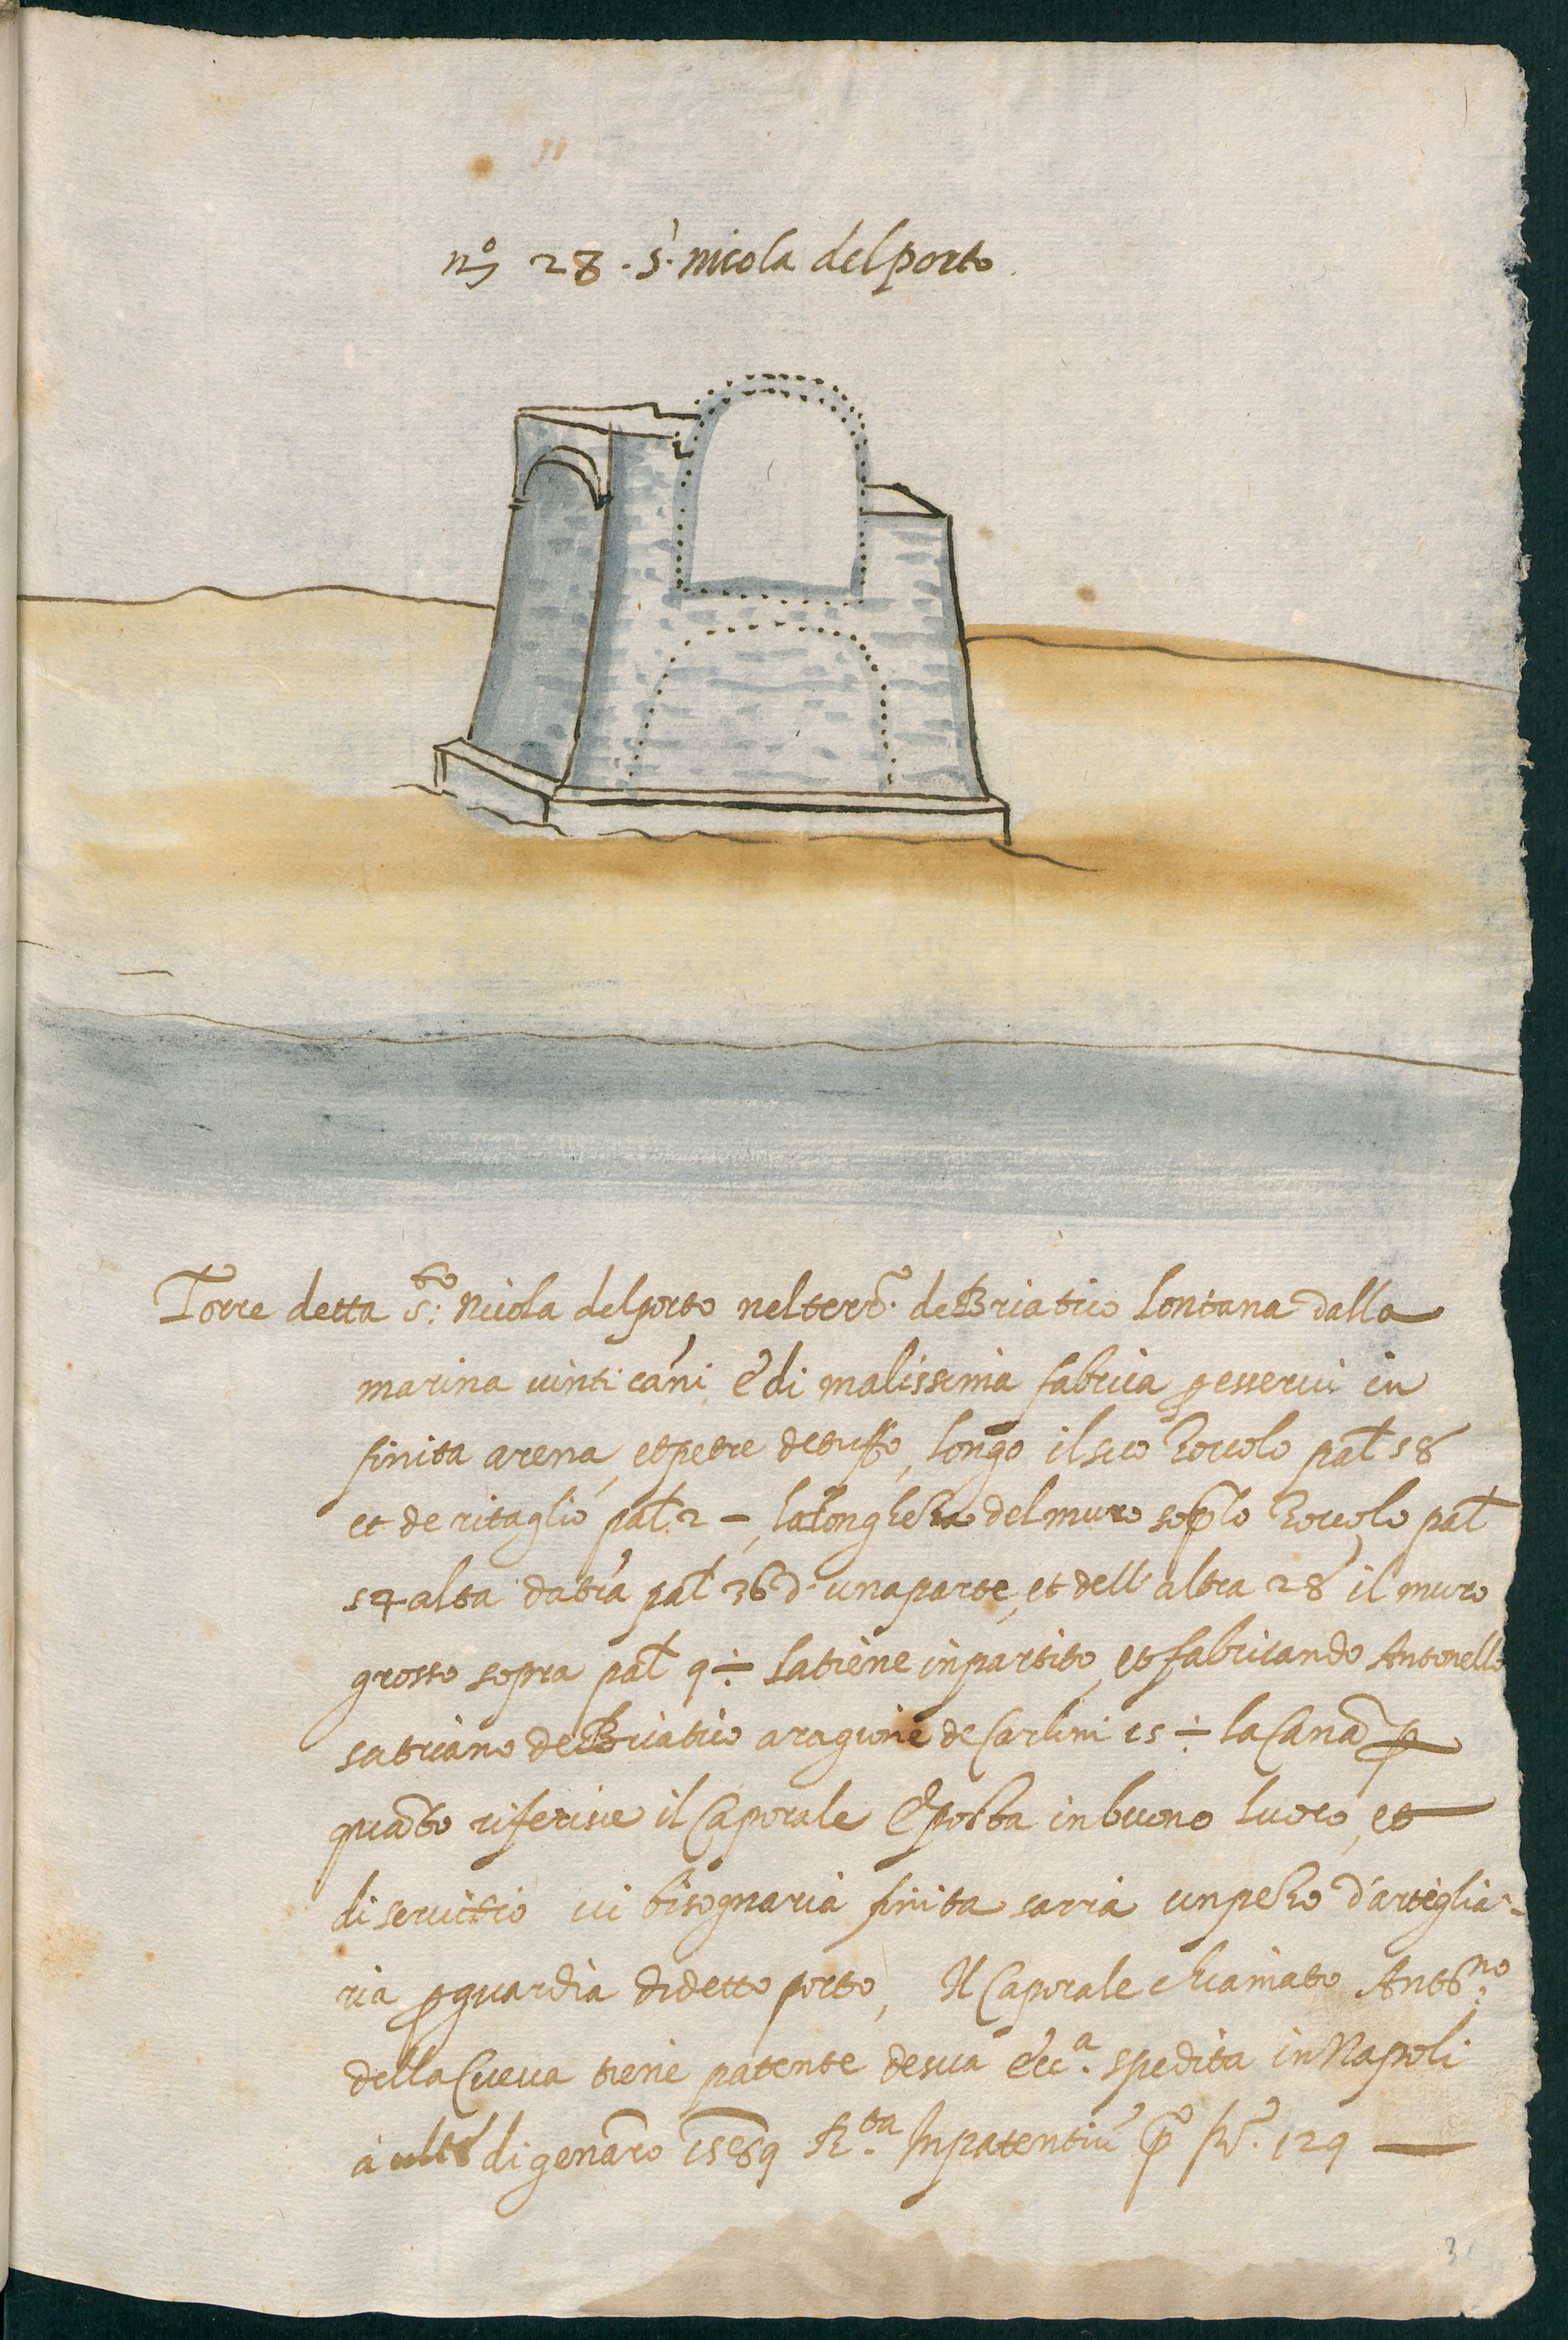 nº 28 · S· nicola del porto
Torre detta s.to Nicola del porto nel terr.o de Briatico lontana dalla
marina vinti canni, è di malissima fabrica p esservi in
finita arena, et petre de tuffo, longo il suo zoccolo pal 58
et de ritaglio pal. 2 –, la longhezza del muro sop lo zoccolo pal
54 alta da tra pal 36 d· una parte, et dell' altra 28 il muro
grosso sopra pal 9 ÷ la tiene in partito, et fabricando Antonello
satriano de Briatico a ragione de Carlini 15 ÷ la Cana p
quãto riferisce il Caporale è posta in buono luoco, et
di servitio vi bisognaria finita sarria un pezo d'artiglia-
ria p guardia di detto porto, Il Caporale chiamato Ant.no
della Cueva tiene patente de sua ecc.a spedita in Napoli
à ult.o di genãro 1569 R.ta In patentiũ p.o fo. 129 —
3